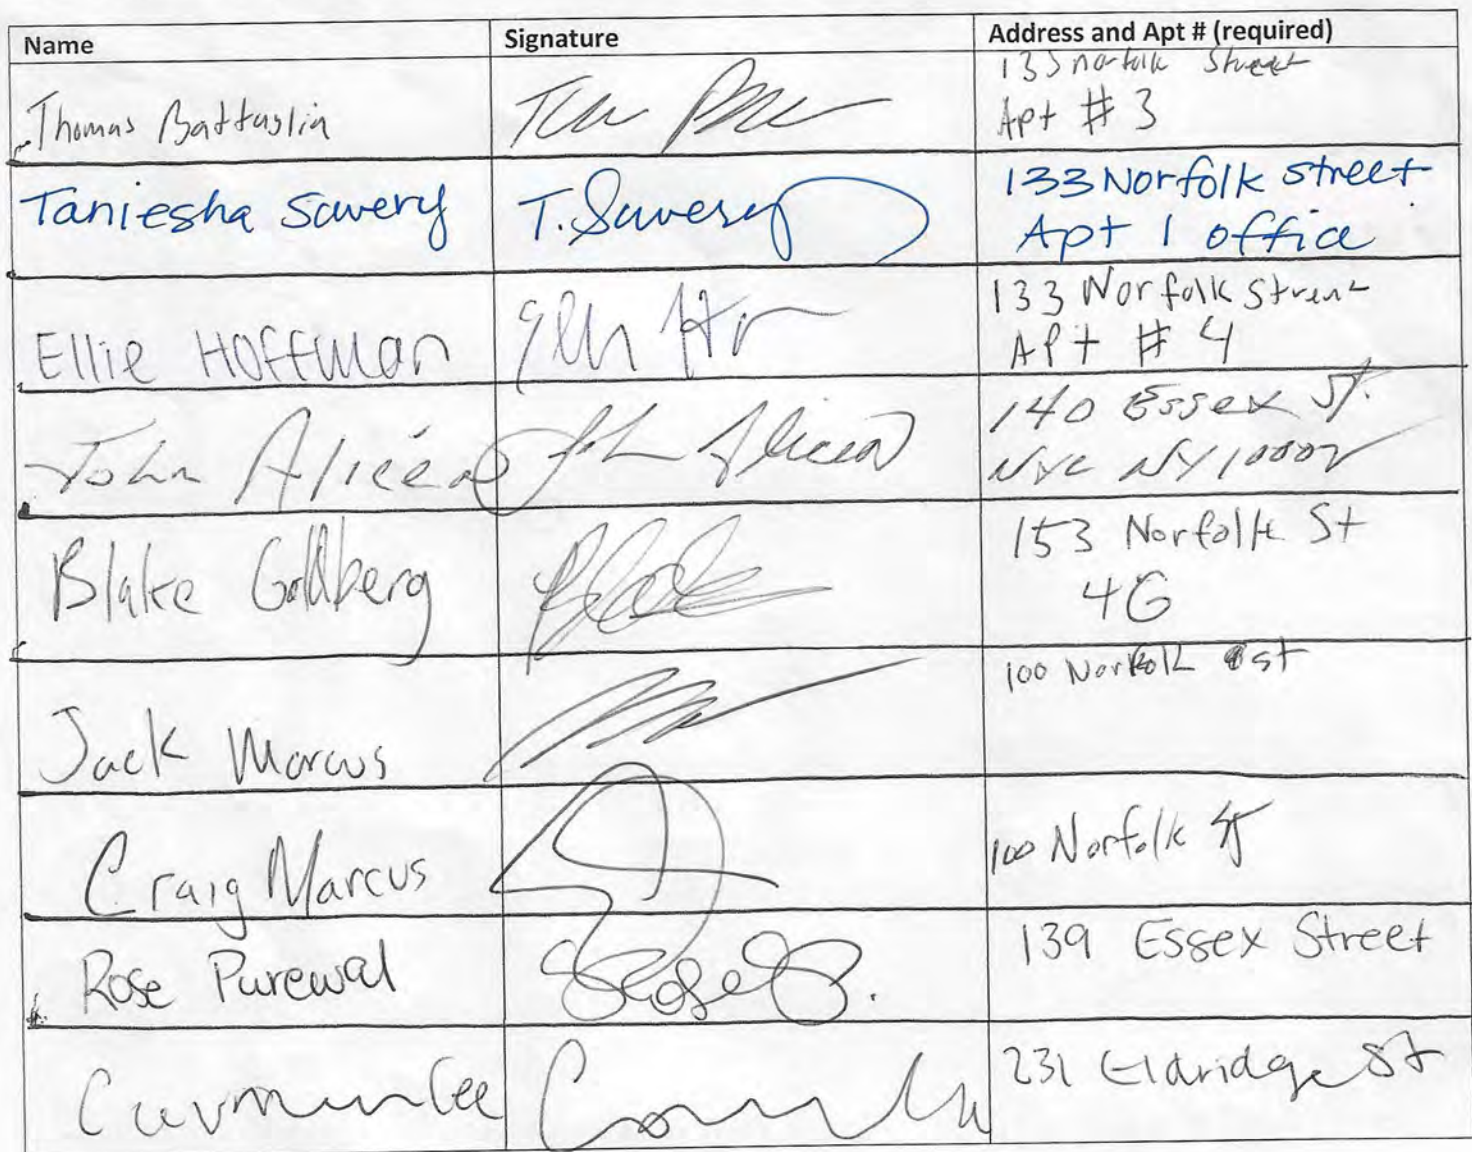 Name Signature Address and Apt # (required)
Thomas Battaglia 133 norfolk Street
Apt # 3
Taniesha Savery T. Savery 133 Norfolk street
Apt 1 office
Ellie Hoffman 133 Norfolk Street
APt # 4
John Alicea John Alicea 140 Essex St.
NYC NY 10002
Blake Goldberg Blake 153 Norfolk St
4G
Jack Marcus 100 Norfolk st
Craig Marcus 100 Norfolk St
Rose Purewal Rose P. 139 Essex Street
Carmen Lee 231 Eldridge St